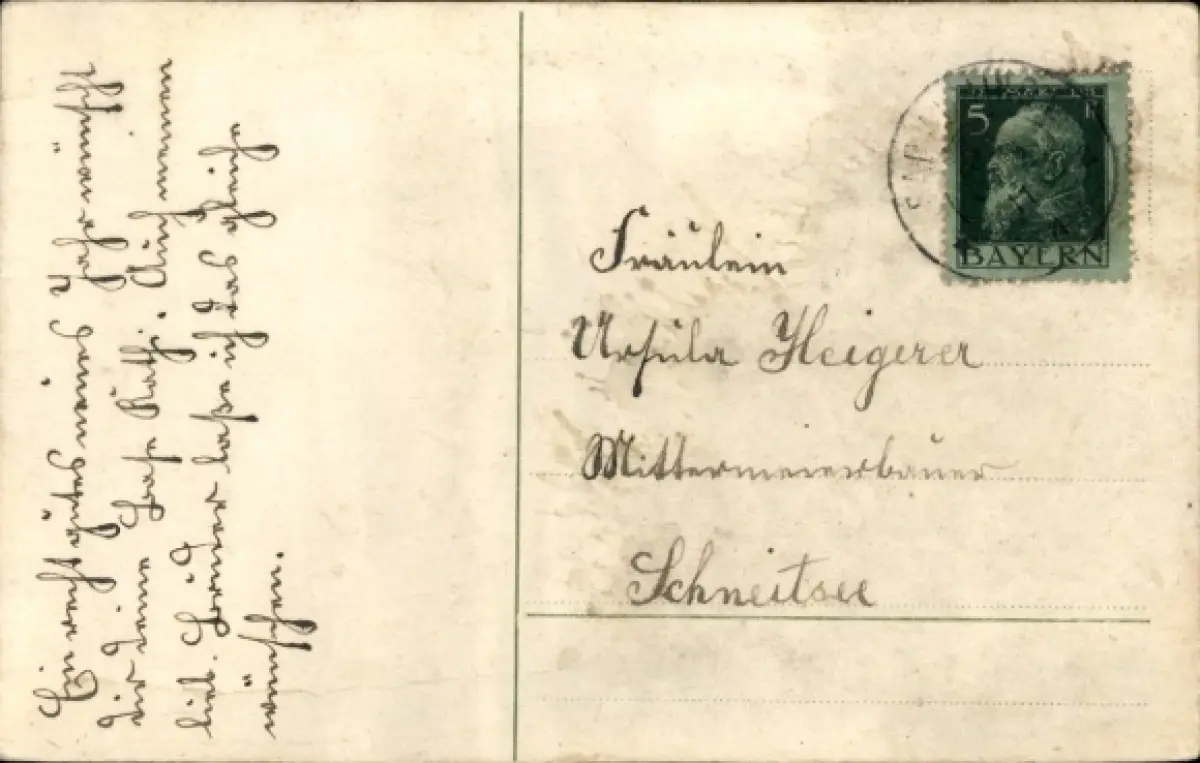 Ein recht gutes neues Jahr wünscht
dir deine Base Kathi. Auch meinen
lieb. Bruder laße ich das gleiche
wünschen.
5
BAYERN
Fräulein
Ursula Heigerer
Mittermeierbauer
Schneitsee